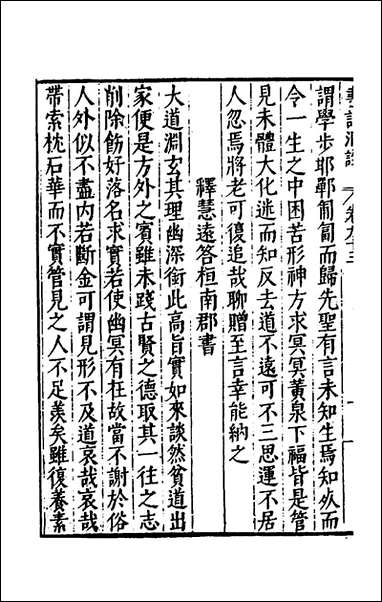 謂學步邯鄲匍匐而歸先聖有言未知生焉知死而
令一生之中困苦形神方求冥冥黃泉下福皆是管
見未體大化迷而知反去道不遠可不三思運不居
人忽焉將老可復追哉聊贈至言幸能納之
釋慧遠答桓南郡書
大道淵玄其理幽深銜此高旨實如來談然貧道出
家便是方外之賓雖未踐古賢之德取其一往之志
削除飾好落名求實若使幽冥有枉故當不謝於俗
人外似不盡内若斷金可謂見形不及道哀哉哀哉
帶索枕石華而不實管見之人不足羨矣雖復養素